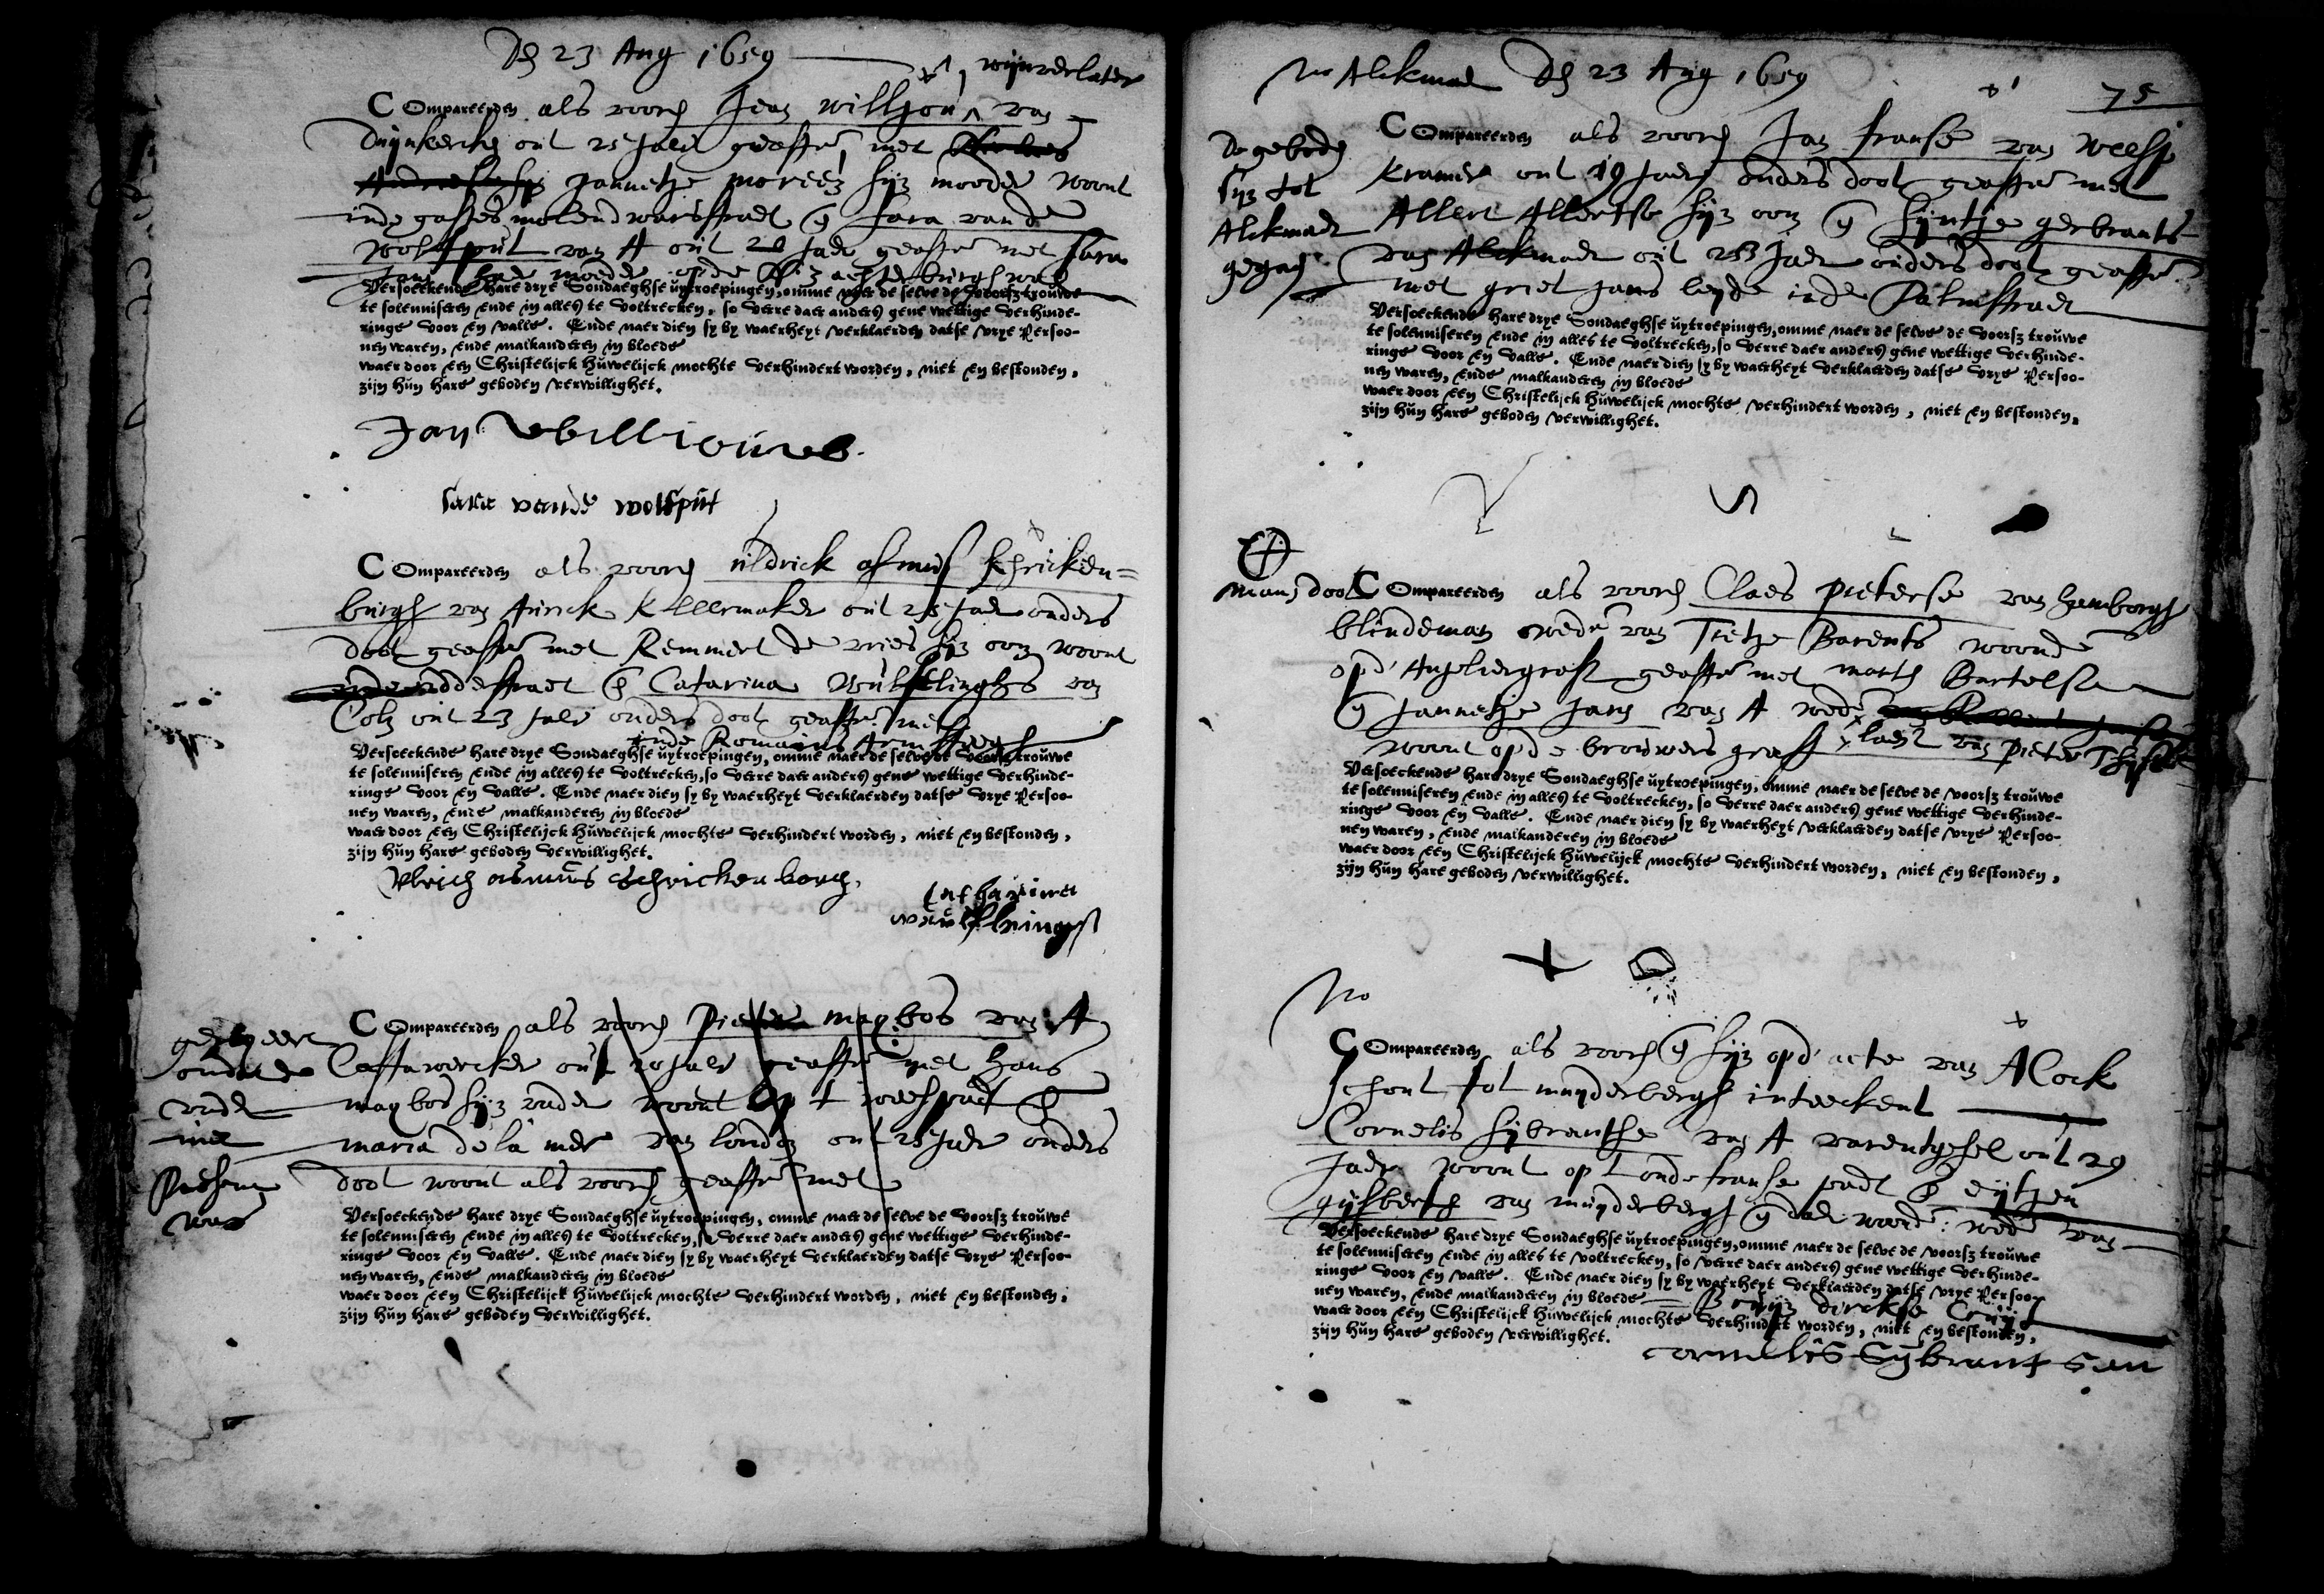 D[en] 23 Aug 1659
wijnverlater
COmpareerden als voor[en] Jean willjou van
Duynkercke out 25 Jaer geasst met
Jannetje moreez sijn moeder woont
inde gasthuis molenswarsstraet en Sara vande
wolfsput van A out 20 Jaer geasst met Sara
Jans haer moeder opde achterburghwal
Versoeckende hare drye Sondaeghse uytroepingen, omme naer de selve de voorsz trouwe
te solenniseren ende in alles te voltrecken, so verre daer anders gene wettige verhinde-
ringe voor en valle. Ende naer dien sy by waerheyt verklaerden datse vrye Persoo-
nen waren, ende malkanderen in bloede
waer door een Christelijck huwelijck mochte verhindert worden, niet en bestonden,
zijn hun hare geboden verwillighet.
Jan Willioures
sara vande wolfput
COmpareerden als voor[en] uldrick asmus schricken=
burgh van Aurick kleermaker out 25 Jaer ouders
doot geasst met Remmert de vries sijn oom woont
inde ridderstraet en Catarina Wulflinghs van
Coln out 23 Jaer ouders doot geasst met
inde Romeins Armsteegh
Versoeckende hare drye Sondaeghse uytroepingen, omme naer de selve de voorsz trouwe
te solenniseren ende in alles te voltrecken, so verre daer anders gene wettige verhinde-
ringe voor en valle. Ende naer dien sy by waerheyt verklaerden datse vrye Persoo-
nen waren, ende malkanderen in bloede
waer door een Christelijck huwelijck mochte verhindert worden, niet en bestonden,
zijn hun hare geboden verwillighet.
Vlrich asmus Schrickenborch,
Catharina
wulflinings
COmpareerden als voor[en] Pieter maybos van A
Caffawercker out 20 Jaer geasst met Hans
maybos sijn vader woont op t weespadt en
maria de la mer van london out 25 Jaer ouders
doot woont als voor[en] geasst met
omdat de
vader
niet
Present
was
Versoeckende hare drye Sondaeghse uytroepingen, omme naer de selve de voorsz trouwe
te solenniseren ende in alles te voltrecken, so verre daer anders gene wettige verhinde-
ringe voor en valle. Ende naer dien sy by waerheyt verklaerden datse vrye Persoo-
nen waren, ende malkanderen in bloede
waer door een Christelijck huwelijck mochte verhindert worden, niet en bestonden,
zijn hun hare geboden verwillighet.
No Alckmaer D[en] 23 Aug 1659
75
De geboden
sijn tot
Alckmaer
gegaen
COmpareerden als voor[en] Jan franse van weesp
kramer out 29 Jaer ouders doot geasst met
Allert Allertse sijn oom en Sijntje gerbrants
van Alckmaer out 23 Jaer ouders doot geasst
met griet Jans leyde inde Palmstraet
Versoeckende hare drye Sondaeghse uytroepingen, omme naer de selve de voorsz trouwe
te solenniseren ende in alles te voltrecken, so verre daer anders gene wettige verhinde-
ringe voor en valle. Ende naer dien sy by waerheyt verklaerden datse vrye Persoo-
nen waren, ende malkanderen in bloede
waer door een Christelijck huwelijck mochte verhindert worden, niet en bestonden,
zijn hun hare geboden verwillighet.
mans doot
COmpareerden als voor[en] Claes Pieterse van hamborgh
blindeman wedr van Trietje Barents woont
op d' Angeliergraft geasst met marth Bartelse
en Jannetje Jans van A wede
woont op de brouwers graft laest van Pieter Thijsse
Versoeckende hare drye Sondaeghse uytroepingen, omme naer de selve de voorsz trouwe
te solenniseren ende in alles te voltrecken, so verre daer anders gene wettige verhinde-
ringe voor en valle. Ende naer dien sy by waerheyt verklaerden datse vrye Persoo-
nen waren, ende malkanderen in bloede
waer door een Christelijck huwelijck mochte verhindert worden, niet en bestonden,
zijn hun hare geboden verwillighet.
No
COmpareerden als voor[en] en sijn op d' acte van A Cock
schout tot muyderbergh inteeckent
Cornelis sijbrantse van A varentgesel out 29
Jaer woont op t oude franse padt en eijtjen
gijsberts van muyderbergh en daer woont wede van
Versoeckende hare drye Sondaeghse uytroepingen, omme naer de selve de voorsz trouwe
te solenniseren ende in alles te voltrecken, so verre daer anders gene wettige verhinde-
ringe voor en valle. Ende naer dien sy by waerheyt verklaerden datse vrye Persoo-
nen waren, ende malkanderen in bloede dirckse
waer door een Christelijck huwelijck mochte verhindert worden, niet en bestonden,
zijn hun hare geboden verwillighet.
cornelis Sijbrantsen